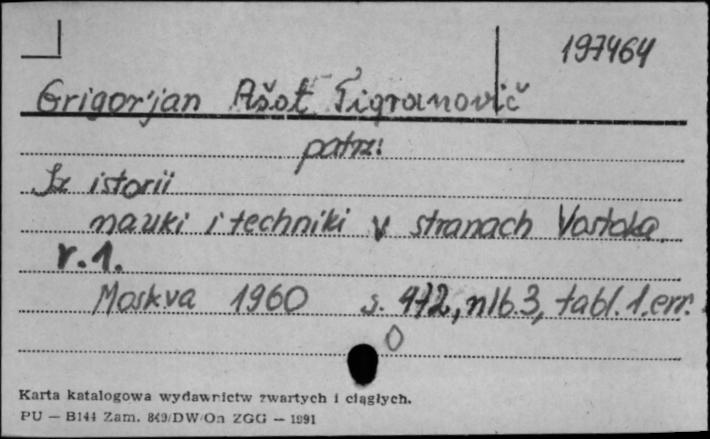 197464
Grigor'jan Ašot Tigranovič
patrz:
Iz istorii
nauki i techniki v stranach Vostoka
v.1.
Moskva 1960 s. 472, nlb. 3, tabl. 1. err.
0
Karta katalogowa wydawnictw zwartych i ciągłych.
PU — B144 Zam. 849/DW/On ZGG — 1991